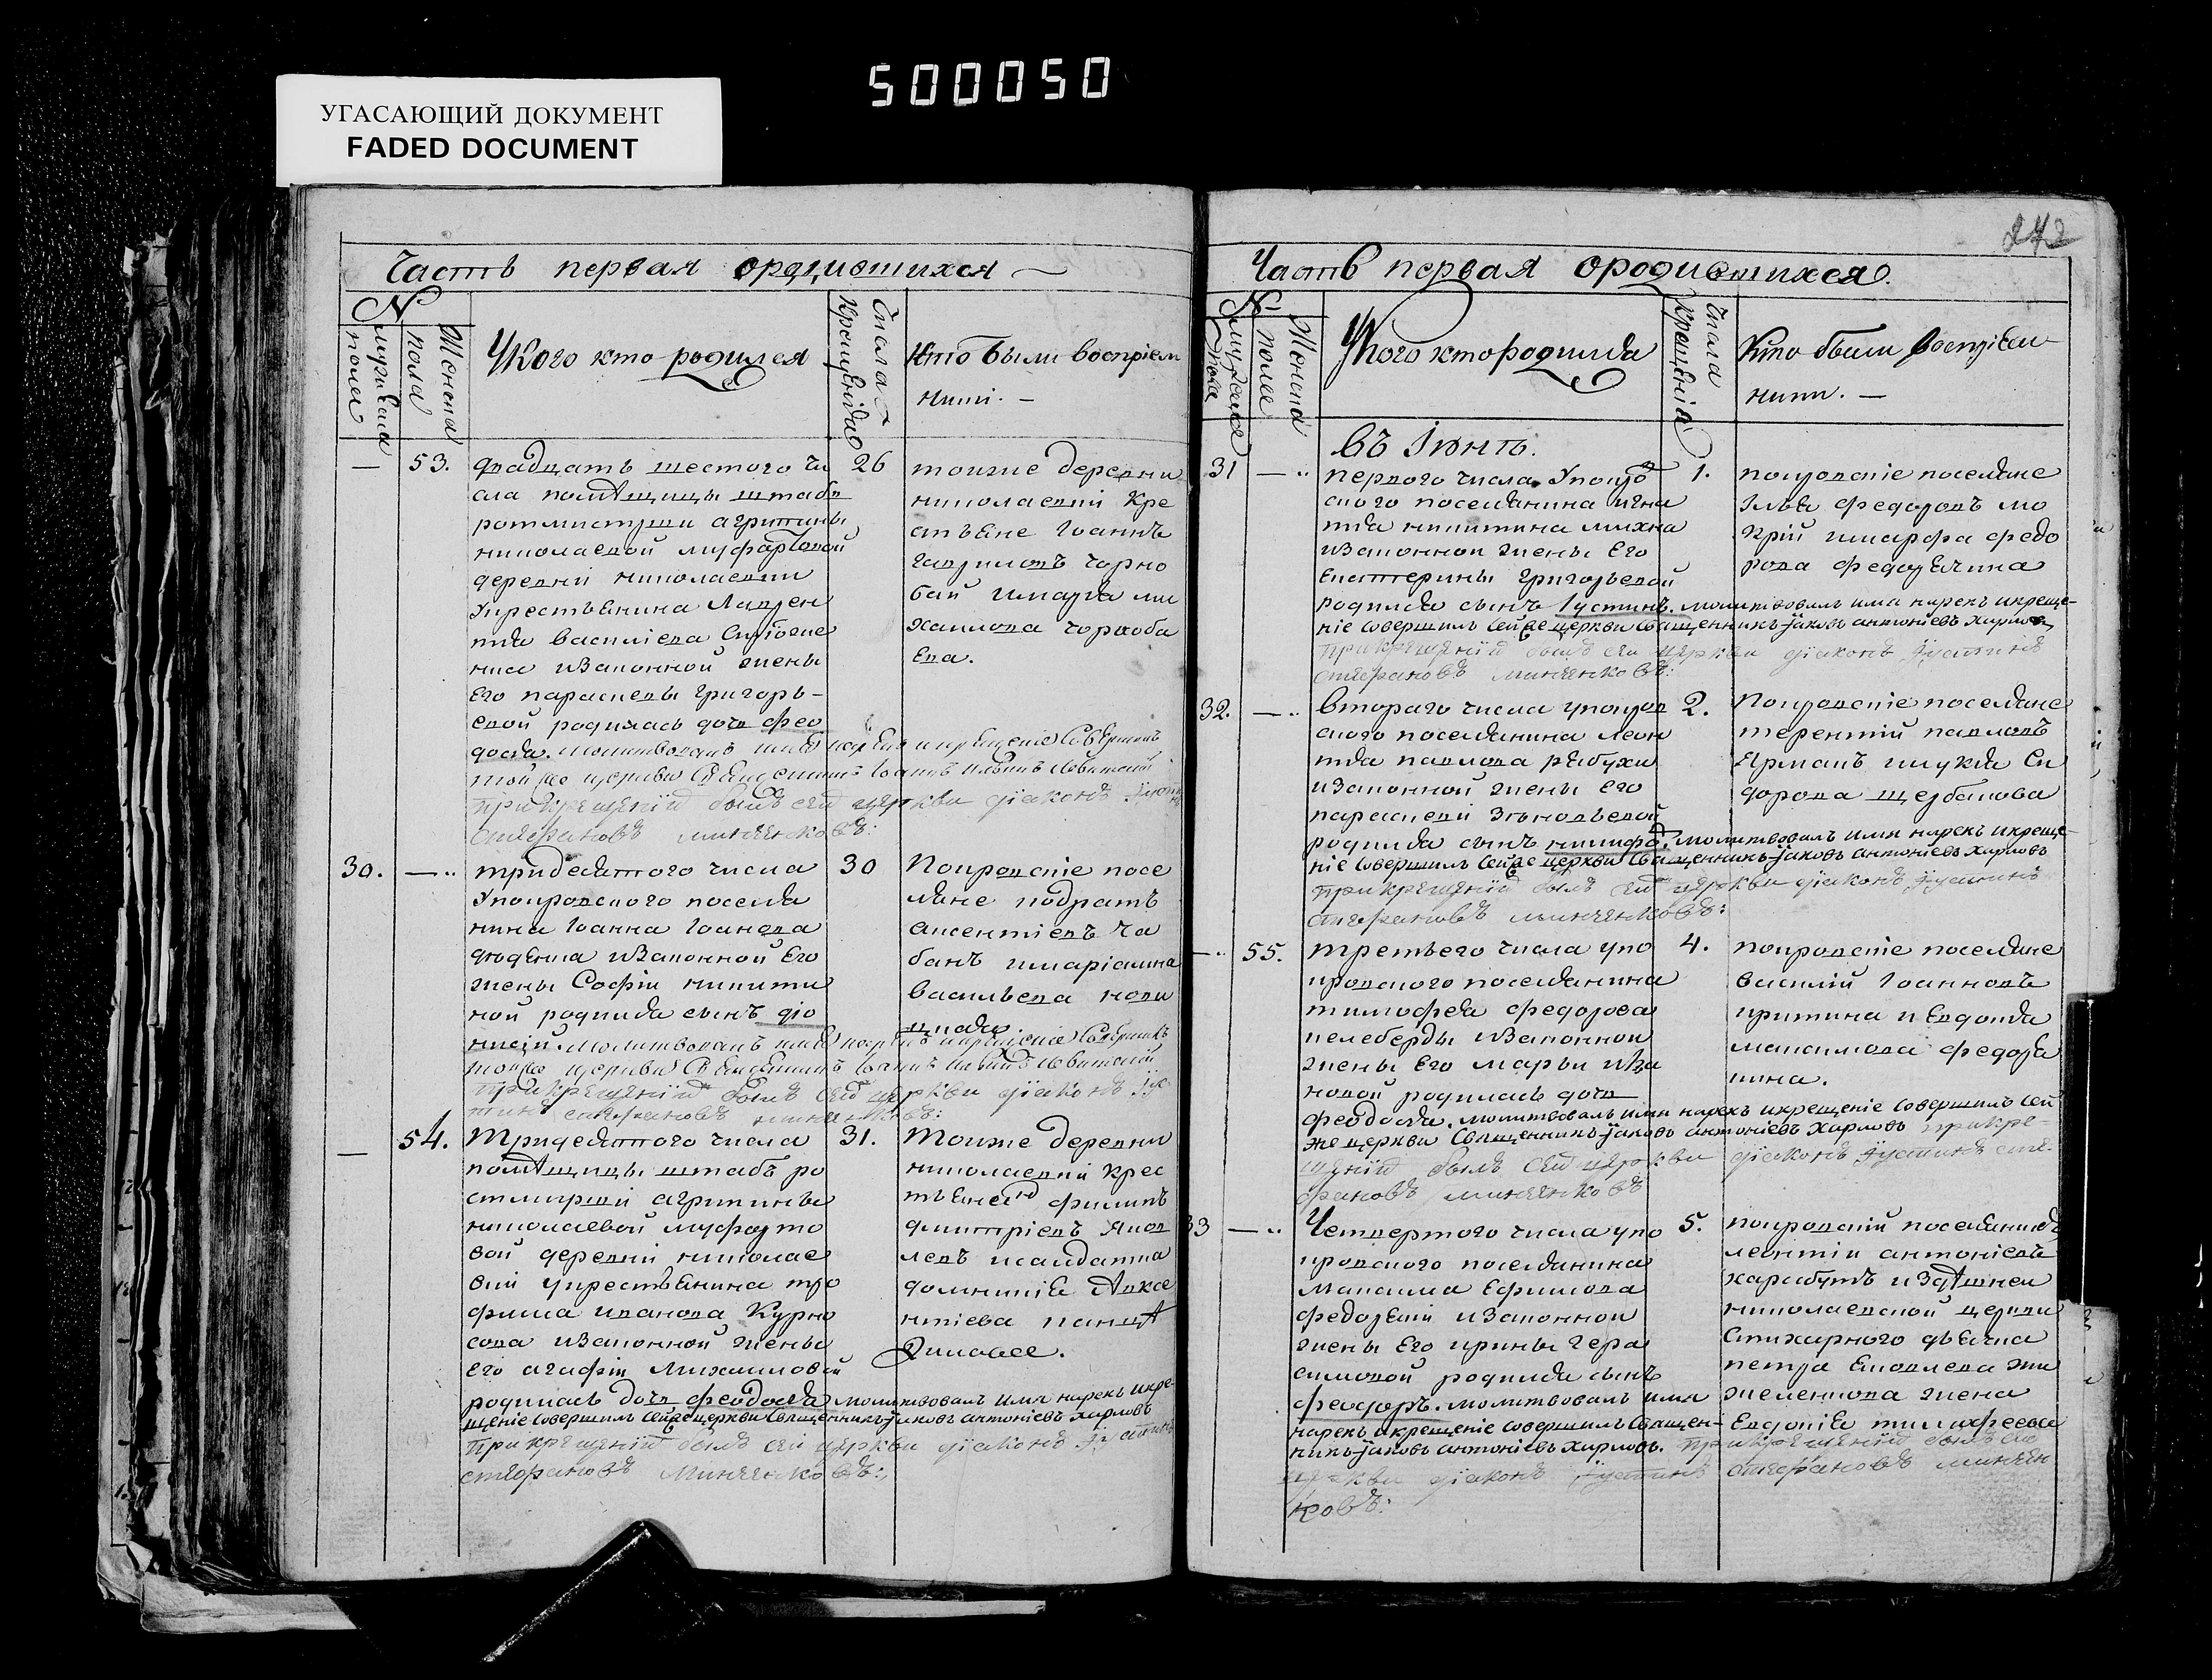 500050
УГАСАЮЩИЙ ДОКУМЕНТ
FADED DOCUMENT
Часть первая ородившихся
№
мужеска пола
Женска пола
Укого кто родился
Числа крещенїя
Кто были воспрїем
ники.
53.
двадцать шестого чи
сла помѣщицы штабъ
ротмистрши агрипины
николаевой муфартовой
деревни николаевки
укрестьянина Лаврен
тїя василїева
изаконной жены
Его параскевы григорь-
евой родилась дочь фео
досїя. молитвовалъ имя нарекъ и крещенїе совершилъ
той же церкви священникъ Iоаннъ
прикрещенїи былъ сей церкви дїаконъ
стефановъ миненковъ:
26
тоиже деревни
николаевки кре
стьяне Iоаннъ
гавриловъ чорно
бай имарѳа ми
хаилова чорноба
ева.
30.
тридесятого числа
упокровского поселя
нина Iоанна Iоанова
изаконной Его
жены Софїи никити
ной родился сынъ дїо
нисїй. молитвовалъ имя нарекъ и крещенїе совершилъ
тойже церкви священникъ Iоаннъ
прикрещенїи былъ сей церкви дїаконъ Iус
тинъ стефановъ миненковъ:
30
Покровскїе посе
ляне кодратъ
аксентїевъ ча
банъ имарїамна
васильева нови
цкая.
54.
Тридесятого числа
помѣщицы штабъ ро
стмиршки агрипины
николаевой муфарто
вой деревни николае
вки укрестьянина тро
фима иванова Курно
сова изаконной жены
его агафїи михаиловой
родилась дочь феодосїя молитвовалъ имя нарекъ икре-
щенїе совершилъ сейже церкви священникъ Iаковъ антонїевъ харловъ
прикрещенїи былъ сей церкви дїаконъ Iустинъ
стефановъ миненковъ:
31.
Тоиже деревни
николаевки крес
тьянинъ филипъ
дмитрїевъ яков
левъ исолдатка
домникїя Авксе
нтїева
272
Часть первая ородившихся.
№
мужеска пола
Женска полее
Укого кто родился
Числа крещенїя
Кто были воспрїем
ники.
Въ Iюнѣ.
31
первого числа упокров
ского поселянина игна
тїя никитина михна
изаконной жены Его
Екатерины григорьевой
родился сынъ Iустинъ. молитвовалъ имя нарекъ икреще-
нїе совершилъ сейже церкви священникъ Iаковъ антонїевъ харловъ
прикрещенїи былъ сей церкви дїаконъ Iустинъ
стефановъ миненковъ:
1.
покровскїе поселяне
Iлья федоровъ мо
крїй имарфа федо
рова федорячкина
32.
втораго числа упокров
ского поселянина Леон
тїя павлова рябухи
изаконной жены его
параскеви зѣновьевой
родился сынъ никифоръ. молитвовалъ имя нарекъ икреще-
нїе совершилъ сейже церкви священникъ Iаковъ антонїевъ харловъ
прикрещенїи былъ сей церкви дїаконъ Iустинъ
стефановъ миненковъ:
2.
Покровскїе поселяне
терентїй павловъ
Ярмакъ илукїя Си
дорова щербакова
55.
третьего числа упо
кровского поселянина
тимофея федорова
пелеберды изаконной
жены Его марьи ива
новой родилась дочь
феодосїя. молитвовалъ имя нарекъ икрещенїе совершилъ сей
же церкви священникъ Iаковъ антонїевъ харловъ прикре-
щенїи былъ сей церкви дїаконъ Iустинъ сте-
фановъ миненковъ
4.
покровскїе поселяне
василїй Iоанновъ
притика иЕвдокїя
максимова федоря
кина.
33
Четвертого числа упо
кровского поселянина
максима Ефимова
изаконной
жены Его ирины гера
симовой родился сынъ
феодоръ. молитвовалъ имя
нарекъ икрещенїе совершилъ священ-
никъ Iаковъ антонїевъ харловъ. прикрещенїи былъ сей
церкви дїаконъ Iустинъ стефановъ минен
ковъ:
5.
покровскїй поселянинъ
леонтїи антонїевъ
карабутъ издѣшнеи
николаевской церкви
стихарного дьячка
петра Яковлева жи
желенкова жена
Евдокїя тимофеева